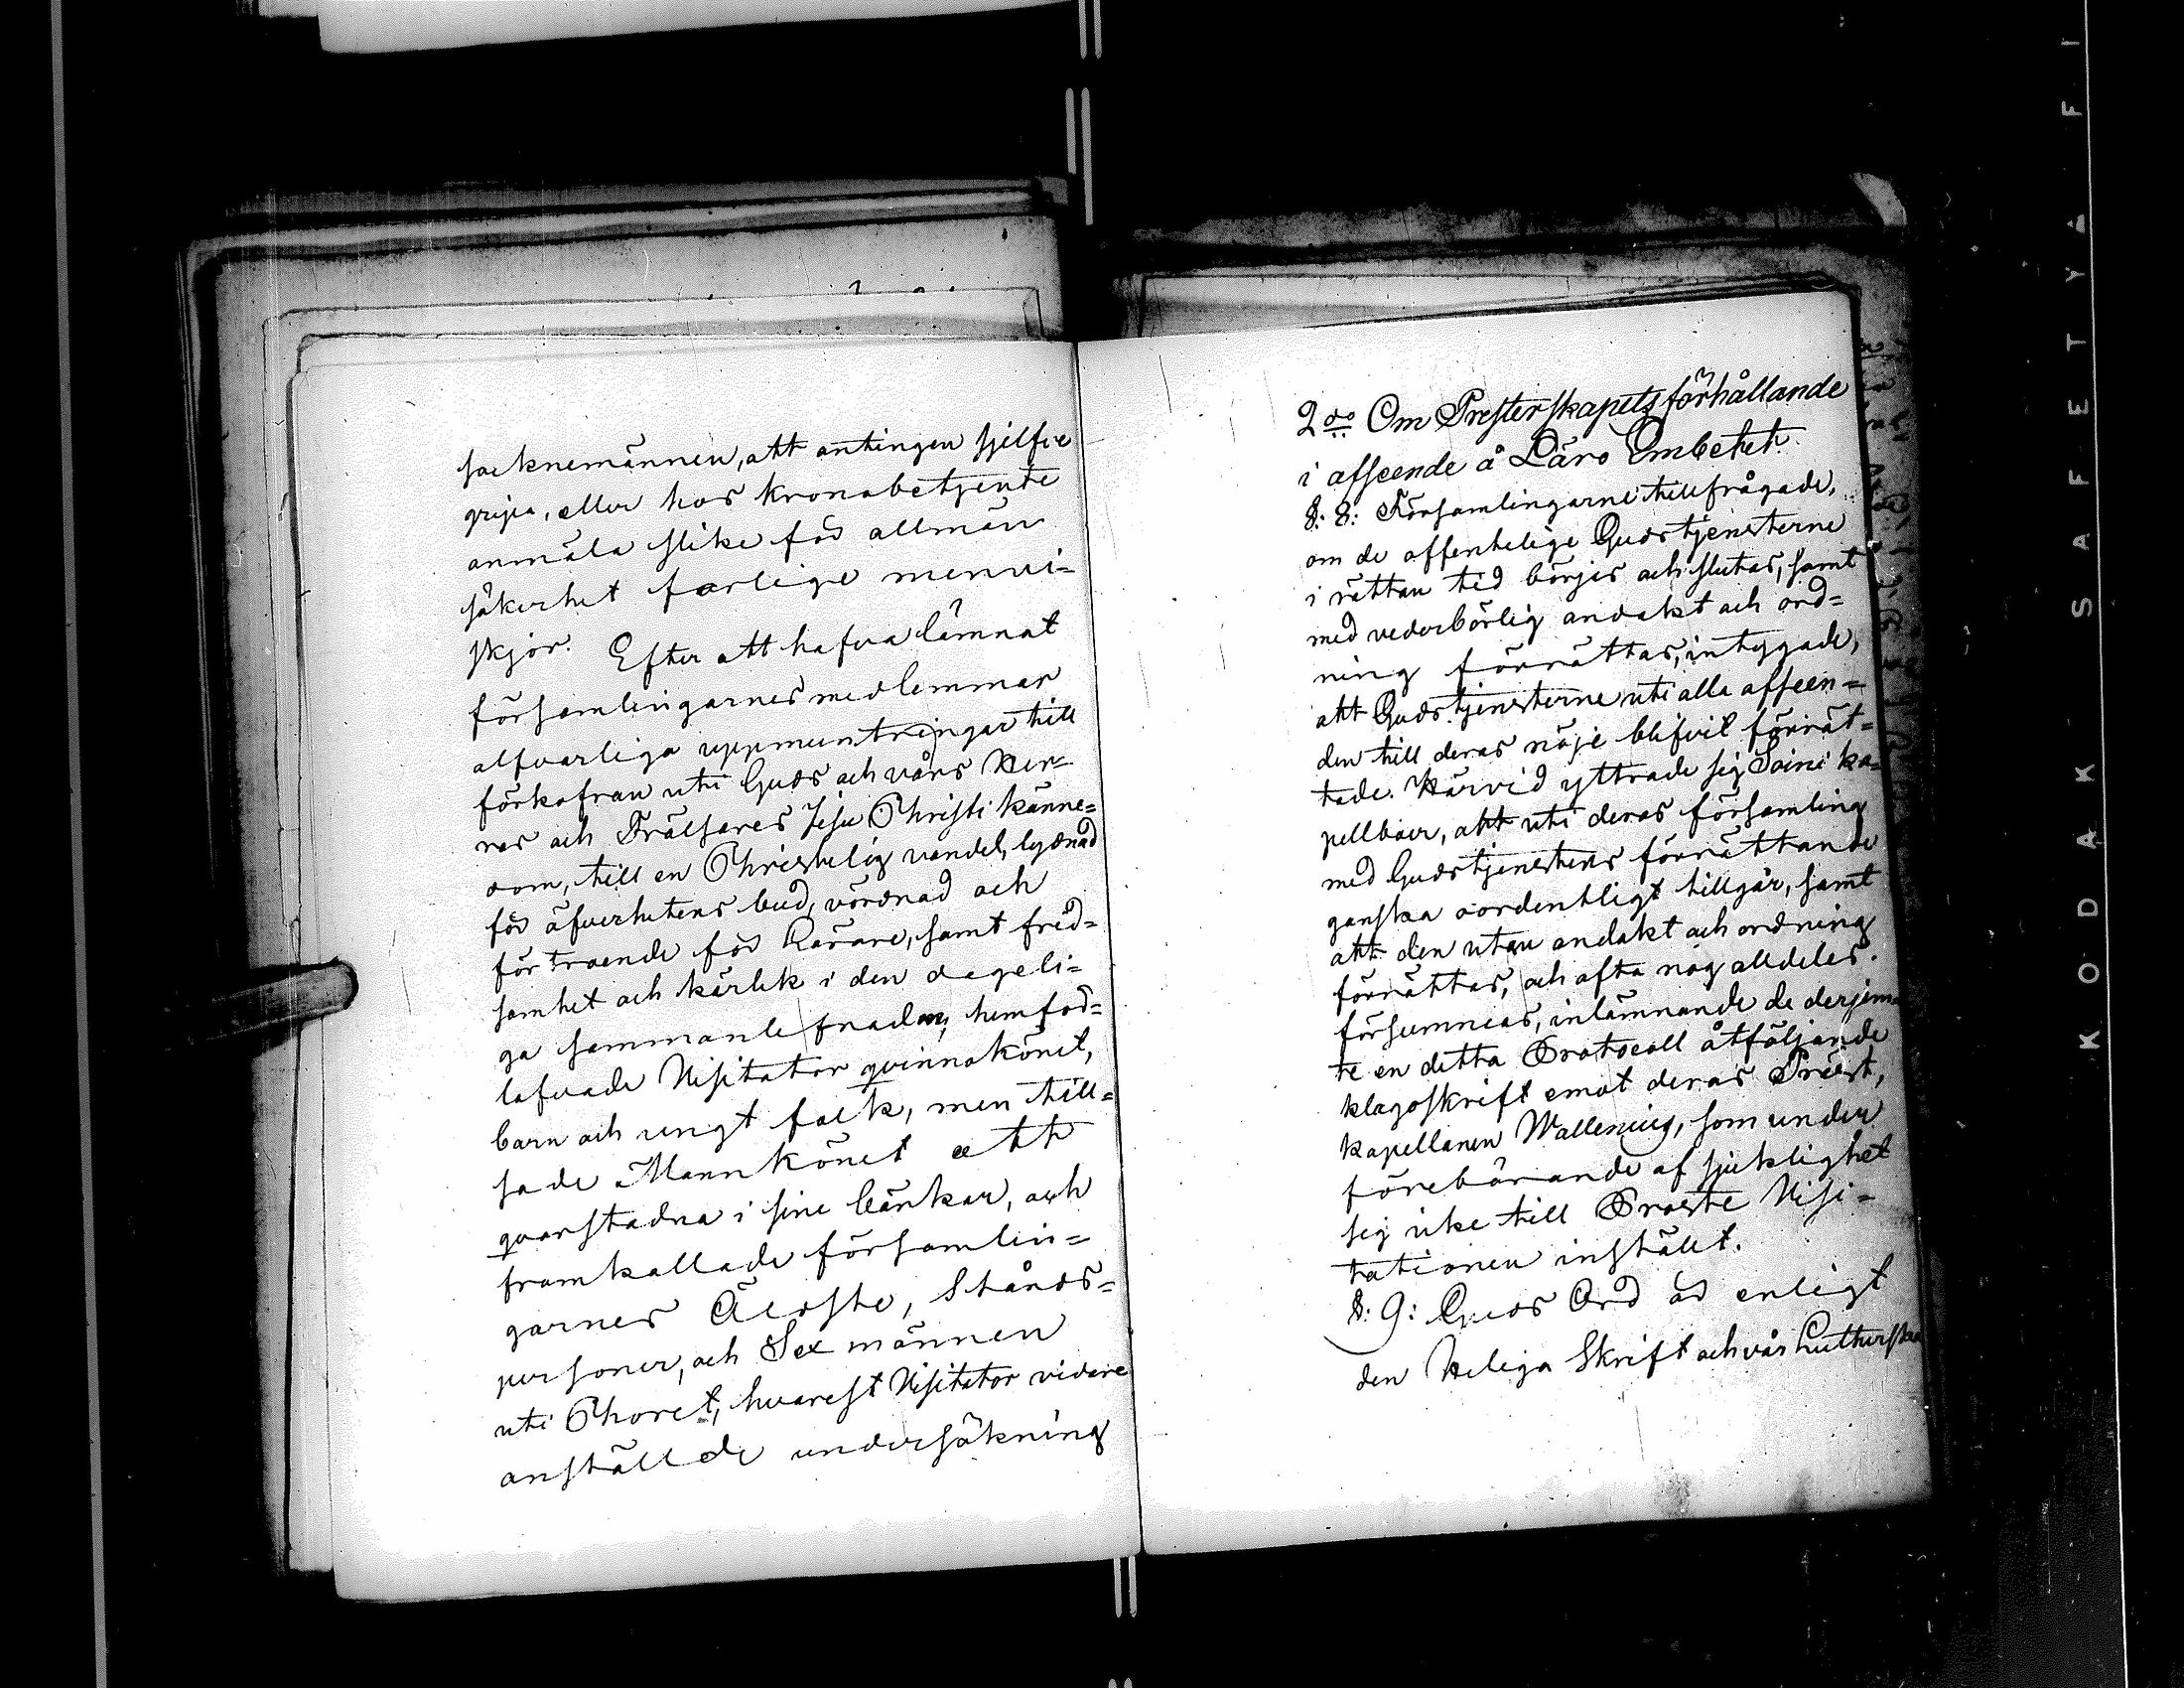 socknemännen, att antingen sjelfve
gripa, eller hos kronobetjente
anmäla slike för allmän
säkerhet farlige menni=
skjor. Efter att hafva lämnat
församlingarnes medlemmar
alfvarliga uppmuntringar till
förkofran uti Guds och vårs Her=
ras och Frälsares Jesu Christi känne=
dom, till en Christelig vandel, lydnad
för öfverhetens bud, vördnad och
förtroende för Lärare, samt frid=
samhet och kärlek i den dageli=
ga sammanlefnaden, hemför=
lofvade Visitator qvinnokönet,
barn och ungt folk, men till=
sade Mannkönet att
qvarstadna i sine bänkar, och
framkallade församlin=
garnes Äldste, Stånds=
personer, och Sexmännen
uti Choret, hvarest Visitator vidare
anställde undersökning
2do Om Presterskapets förhållande
i afseende å Läro Embetet.
§: 8: Församlingarne tillfrågade,
om de offentelige Gudstjensterne
i rättan tid börjas och slutas, samt
med vederbörlig andakt och ord=
ning förrättas, intygade,
att Gudstjensterne uti alla afseen=
den till deras nöje blifvit förrät=
tade. Härvid yttrade sig Soini ka=
pellboer, att uti deras församling
med Gudstjenstens förrättande
ganska oordentligt tillgår, samt
att den utan andakt och ordning
förrättas, och ofta nog alldeles
försummas, inlämnande de derjem=
te en detta Protocoll åtföljande
klagoskrift emot deras Präst,
kapellanen Wallenius, som under
förebärande af sjuklighet
sig icke till Proste Visi=
tationen inställt.
§: 9: Guds Ord är enligt
den Heliga Skrift och vår Lutherska
KODAK - SAFETY FI